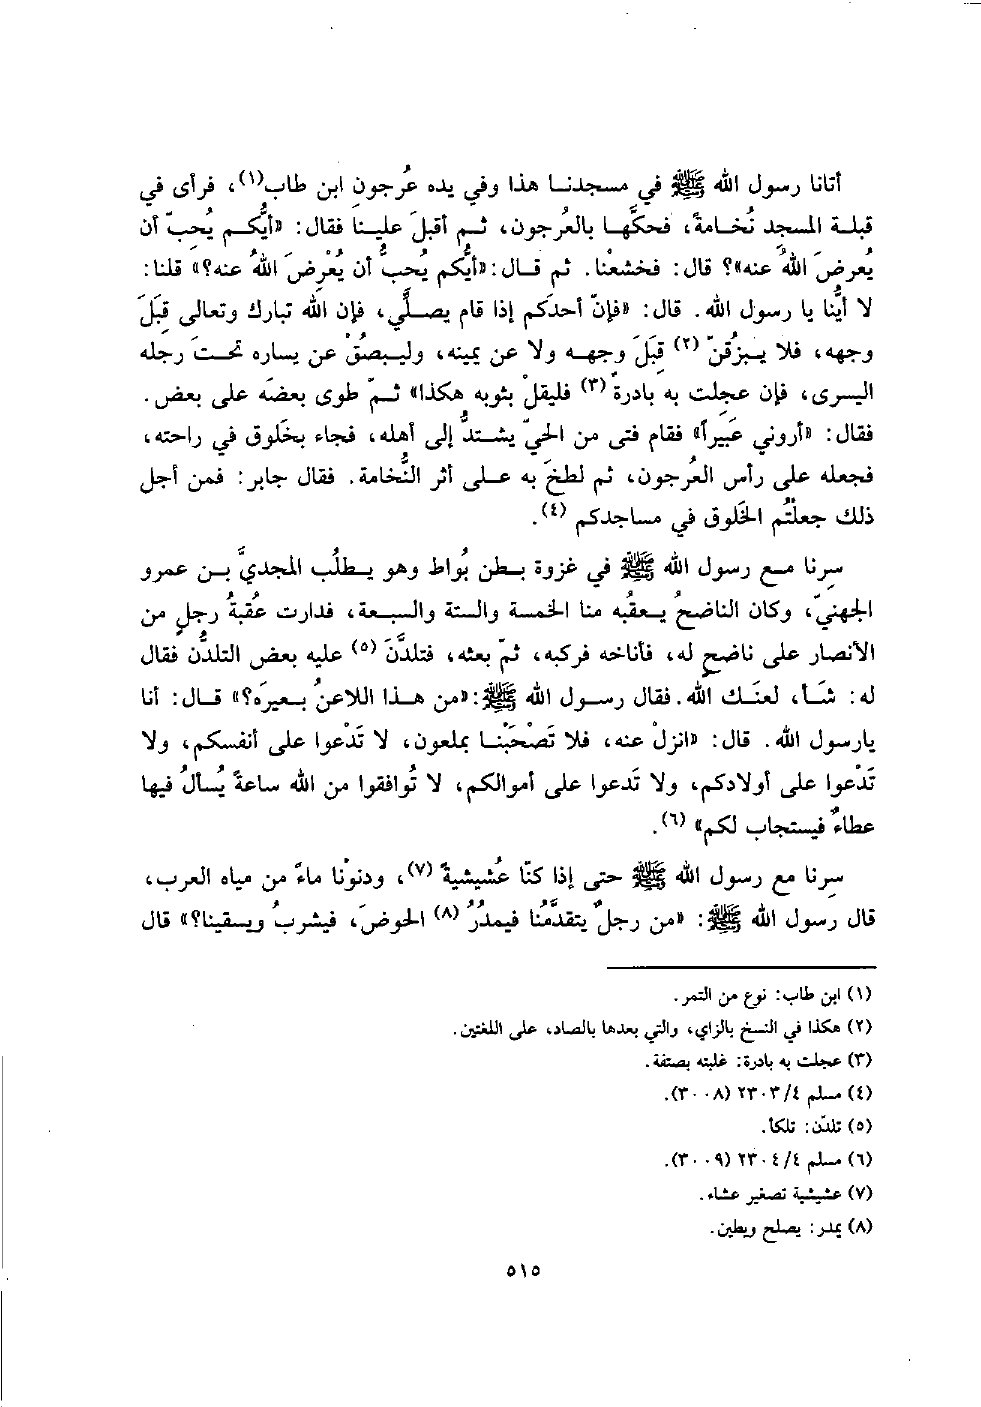 أتانا رسول الله ﷺ في مسجدنا هذا وفي يده عُرجونِ ابن طاب(١)، فرأى في
قبلة المسجد نُخامةً، فحكَّها بالعُرجون، ثم أقبلَ علينا فقال: «أيُّكم يُحِبّ أن
يُعرِضَ اللهُ عنه»؟ قال: فخشعْنا. ثم قال: «أيُّكم يُحبُّ أن يُعْرِضَ اللهُ عنه؟» قلنا:
لا أيُّنا يا رسول الله. قال: «فإنّ أحدَكم إذا قام يصلّي، فإن الله تبارك وتعالى قِبَلَ
وجهه، فلا يبزُقنّ (٢) قِبَلَ وجهه ولا عن يمينه، وليبصُقْ عن يساره تحتَ رجله
اليسرى، فإن عجلت به بادرةٌ (٣) فليقلْ بثوبه هكذا» ثمّ طوى بعضَه على بعض.
فقال: «أروني عَبيراً» فقام فتى من الحيّ يشتدُّ إلى أهله، فجاء بخَلوق في راحته،
فجعله على رأس العُرجون، ثم لطخَ به على أثر النُّخامة. فقال جابر: فمن أجل
ذلك جعلْتُم الخَلوق في مساجدكم (٤).
سِرنا مع رسول الله ﷺ في غزوة بطن بُواط وهو يطلُب المجديَّ بن عمرو
الجهنيّ، وكان الناضحُ يعقُبه منا الخمسة والستة والسبعة، فدارت عُقبةُ رجلٍ من
الأنصار على ناضحٍ له، فأناخه فركبه، ثمّ بعثه، فتلدَّنَ (٥) عليه بعض التلدُّن فقال
له: شَأ، لعنَك الله. فقال رسول الله ﷺ: «من هذا اللاعنُ بعيرَه؟» قال: أنا
يارسول الله. قال: «انزلْ عنه، فلا تَصْحَبْنا بملعون، لا تَدْعوا على أنفسكم، ولا
تَدْعوا على أولادكم، ولا تَدعوا على أموالكم، لا تُوافقوا من الله ساعةً يُسألُ فيها
عطاءٌ فيستجاب لكم» (٦).
سِرنا مع رسول الله ﷺ حتى إذا كنّا عُشيشيةً (٧)، ودنوْنا ماءً من مياه العرب،
قال رسول الله ﷺ: «من رجلٌ يتقدَّمُنا فيمدُرُ (٨) الحوضَ، فيشربُ ويسقينا؟» قال
(١) ابن طاب: نوع من التمر.
(٢) هكذا في النسخ بالزاي، والتي بعدها بالصاد، على اللغتين.
(٣) عجلت به بادرة: غلبته بصقة.
(٤) مسلم ٢٣٠٣/٤ (٣٠٠٨).
(٥) تلدّن: تلكأ.
(٦) مسلم ٢٣٠٤/٤ (٣٠٠٩).
(٧) عشيشية تصغير عشاء.
(٨) يمدر: يصلح ويطين.
٥١٥